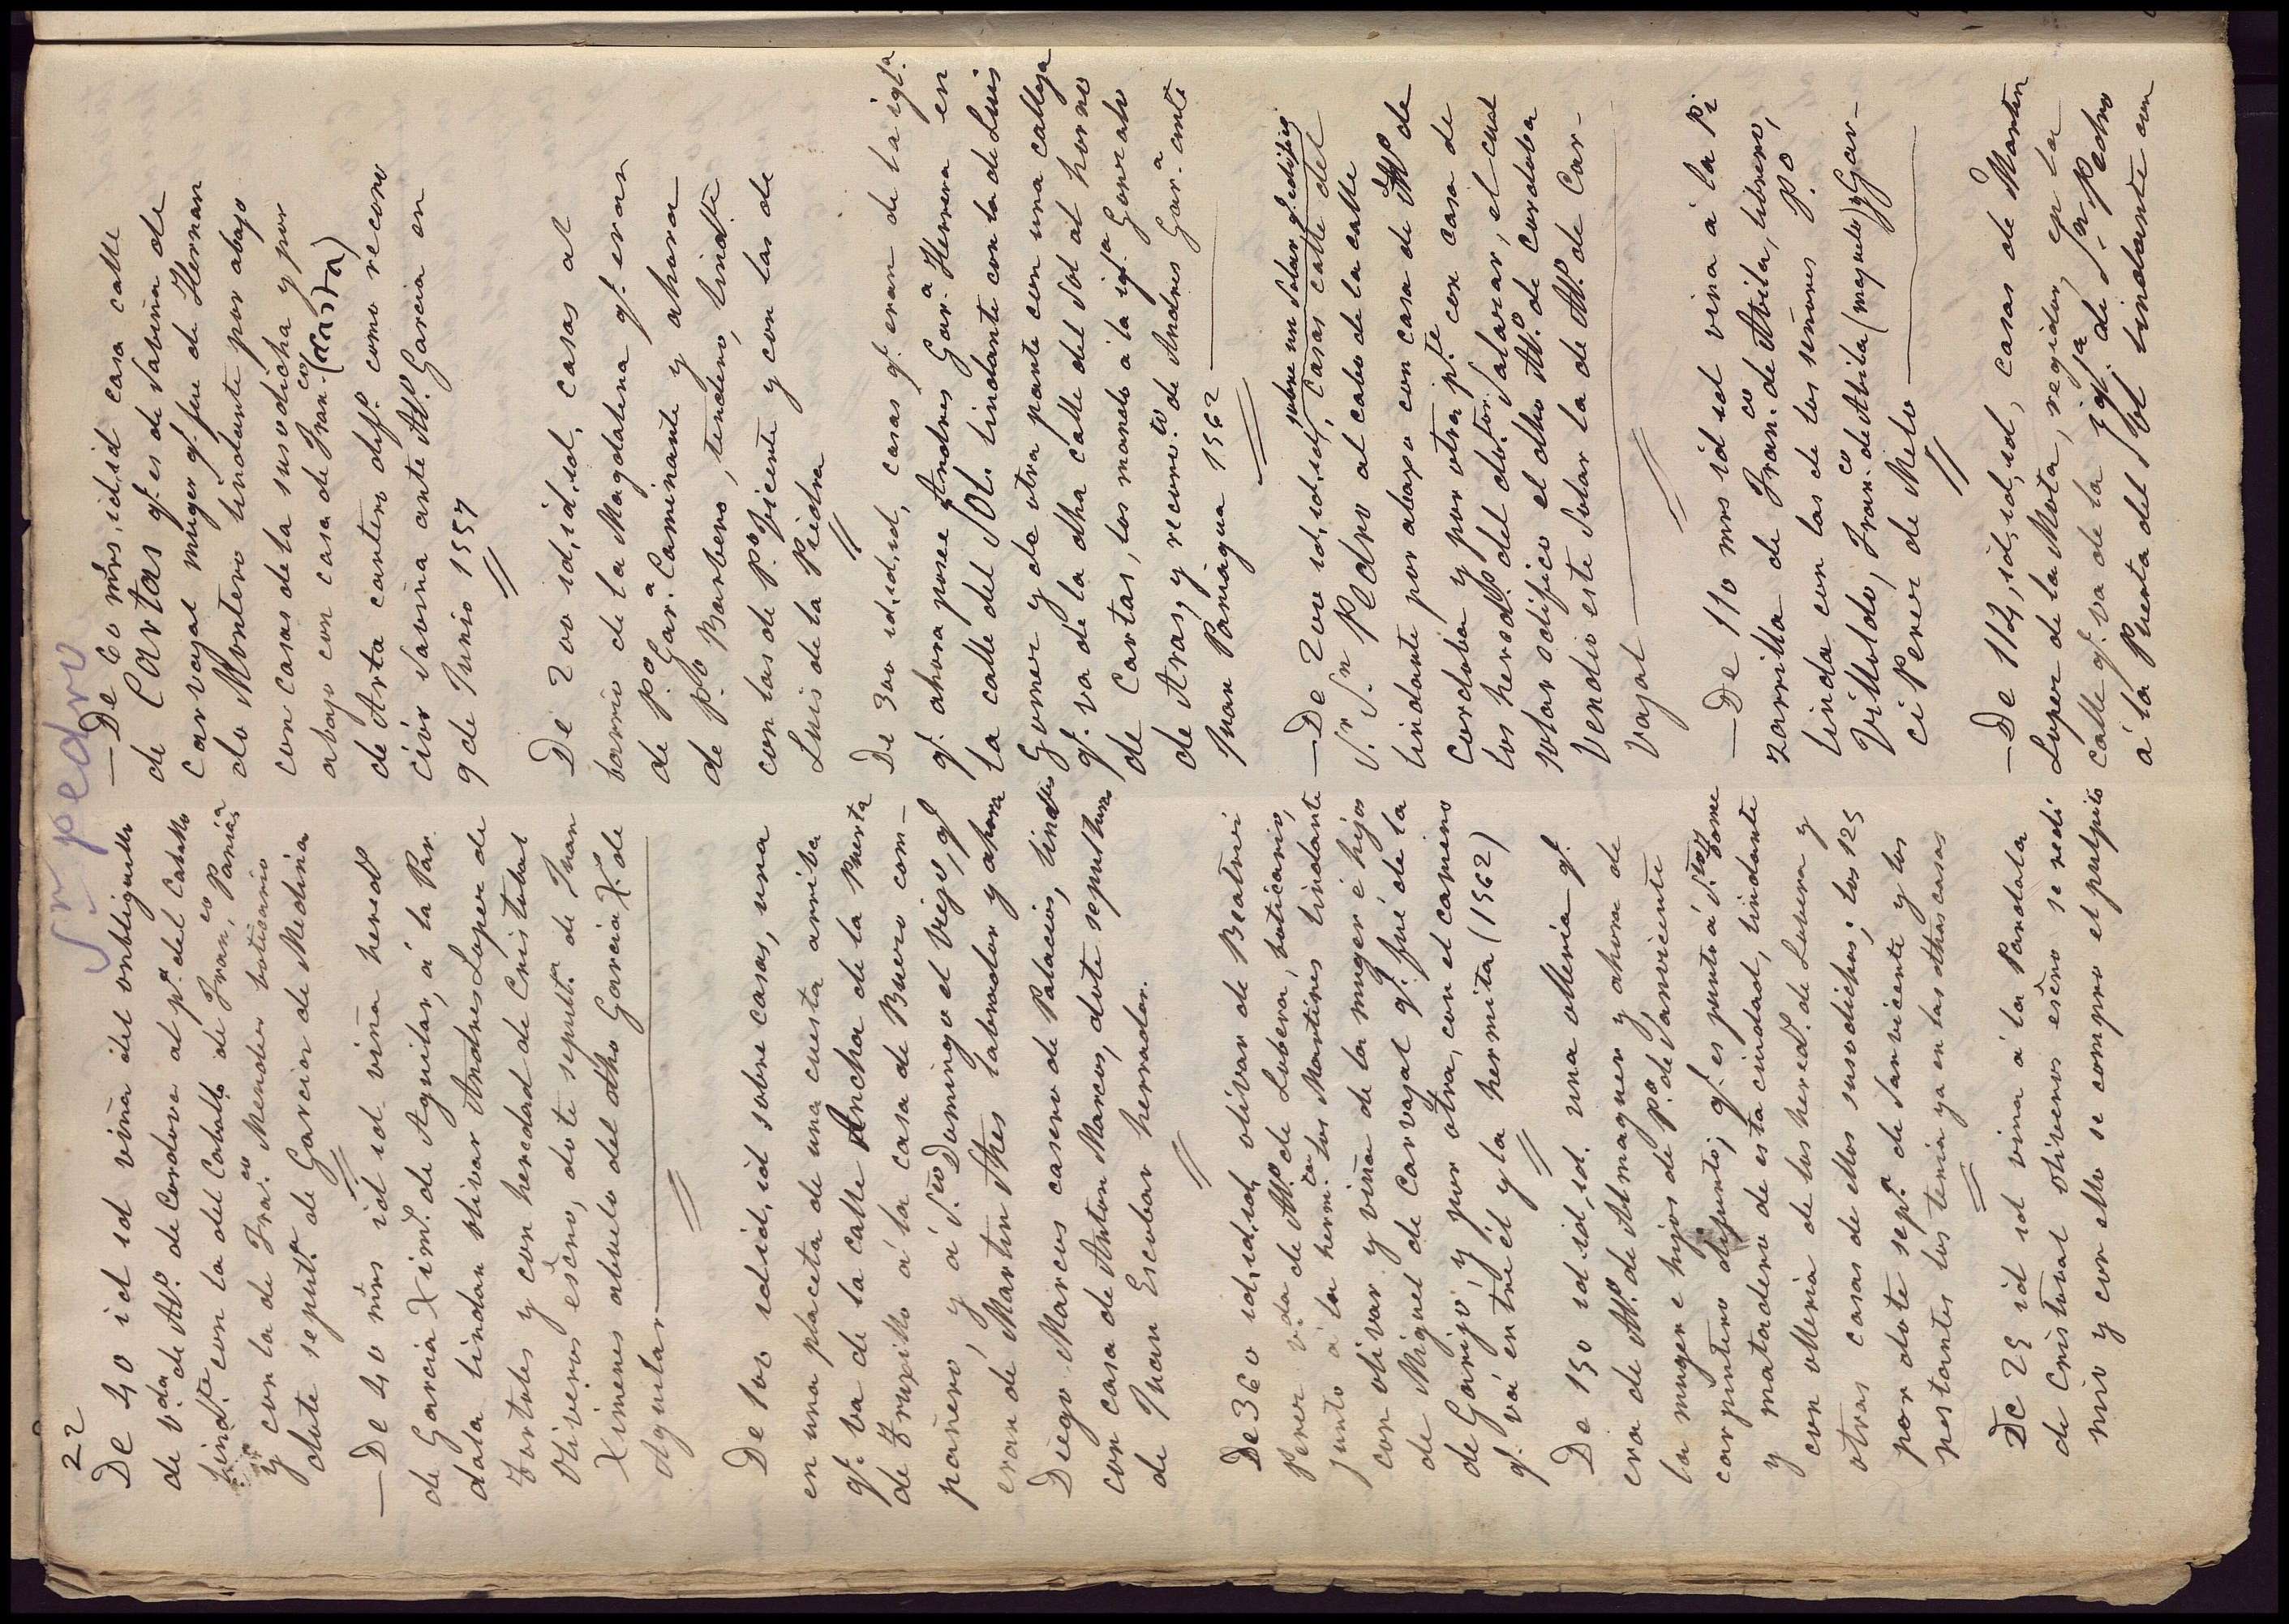 22
Sr pedro
De 40 id id viña del onbliguillo
de v.da de Al.º de Cordova al p.º del Caballo
lind.te con la del Caballo de Fran.co Panias
y con la de Fra.co Mendes boticario
dote seput.ª de Garcia de Medina
—De 40 mrs id id viña hered
de Garcia Xim.º de Aguilar, á la Par
dala lindan olivar Andres Luper de
Tortoles y con heredad de Cristobal
Oliveros esčno, dote seput.ª de Juan
Ximenes abuelo del dho Garcia X.º de
Aguilar
De 100 id id, id sobre casas, una
en una placeta de una cuesta arriba
q.e va de la calle Ancha de la Puerta
de Truxillo á la casa de Bueso com-
pañero, y á S.to Domingo el Viejo, q.e
eran de Martin Ales labrador y ahora
Diego Marcos casero de Palacios, lindtes
con casa de Anton Marcos, dote sepultura
de Juan Escobar herrador.
De 360 id, id, id, olivar de Beatriz
Perez v.da de Al.º de Lubera, boticario,
junto á la herm. de los Martires lindante
con olivar y viña de la muger é hijos
de Miguel de Carvajal q.e fué de la
de Garijo, y por otra, con el camino
q.e vá entre él y la hermita (1562)
De 150 id id, id. una olleria q.e
era de Al.º de Almaguer y ahora de
la muger e hijos de P.º de Sanvicente
carpintero difunto, q.e es junto á S.to Tome
y matadero de esta ciudad, lindante
con olleria de los hered.º de Lubera y
otras casas de ellos susodichos; los 125
por dote sep.ª de Sanvicente y los
restantes los tenia ya en las dthas casas
De 25 id id vina á la Pandala
de Cristobal Oliveros esčno se redi
mio y con ello se compro el pulpito
—De 60 mrs, id, id casa calle
de Cartas q.e es de Sabina de
Carvajal muger q.e fue de Hernan
do Montero lindante por abajo
con casas de la susodicha y por
abajo con casa de Fran.co (Arta)
de Arta cantero dif.º como recono
ciór Savina ante Al.º Garcia en
9 de Junio 1557
De 200 id, id, id, casas al
barrio de la Magdalena q.e eran
de P.º Gar.ª Caminante y ahora
de p.lo Barbero, tendero, lind.te
con las de P.º Vicente y con las de
Luis de la Piedra
De 300 id, id, id, casas q.e eran de la igl.ª
q.e ahora posee Andres Gar.ª Herrera en
la calle del Sol. lindante con la de Luis
Gomez y de otra parte con una calleja
q.e va de la dha calle del Sol al horno
de Cartas, los mando a la igl.ª Gonzalo
de Aras, y recono.to de Andres Gar.ª ante
Juan Paniagua 1562
—De 200 id, id, id, sobre un solar q.e edifico casas calle del
S.r S.n Pedro al cabo de la calle
lindante por abaxo con casa de Al.º de
Cordoba y por otra p.te con casa de
los hered.º del dotor Salazar, el cual
solar edifico el dho Al.º de Cordoba
Vendio este Solar la de Al.º de Car-
vajal
—De 110 mrs id id vina á la Pi
zarrilla de Fran.co de Abila, librero,
linda con las de los señores P.º
Villoldo, Fran.co de Abila (mayudo) y Gar-
ci Perez de Melo
—De 112, id, id, id, casas de Martin
Luper de la Mota, regidor, en la
calle q.e va de la igl.ª de S.n Pedro
á la Puerta del Sol lindante con